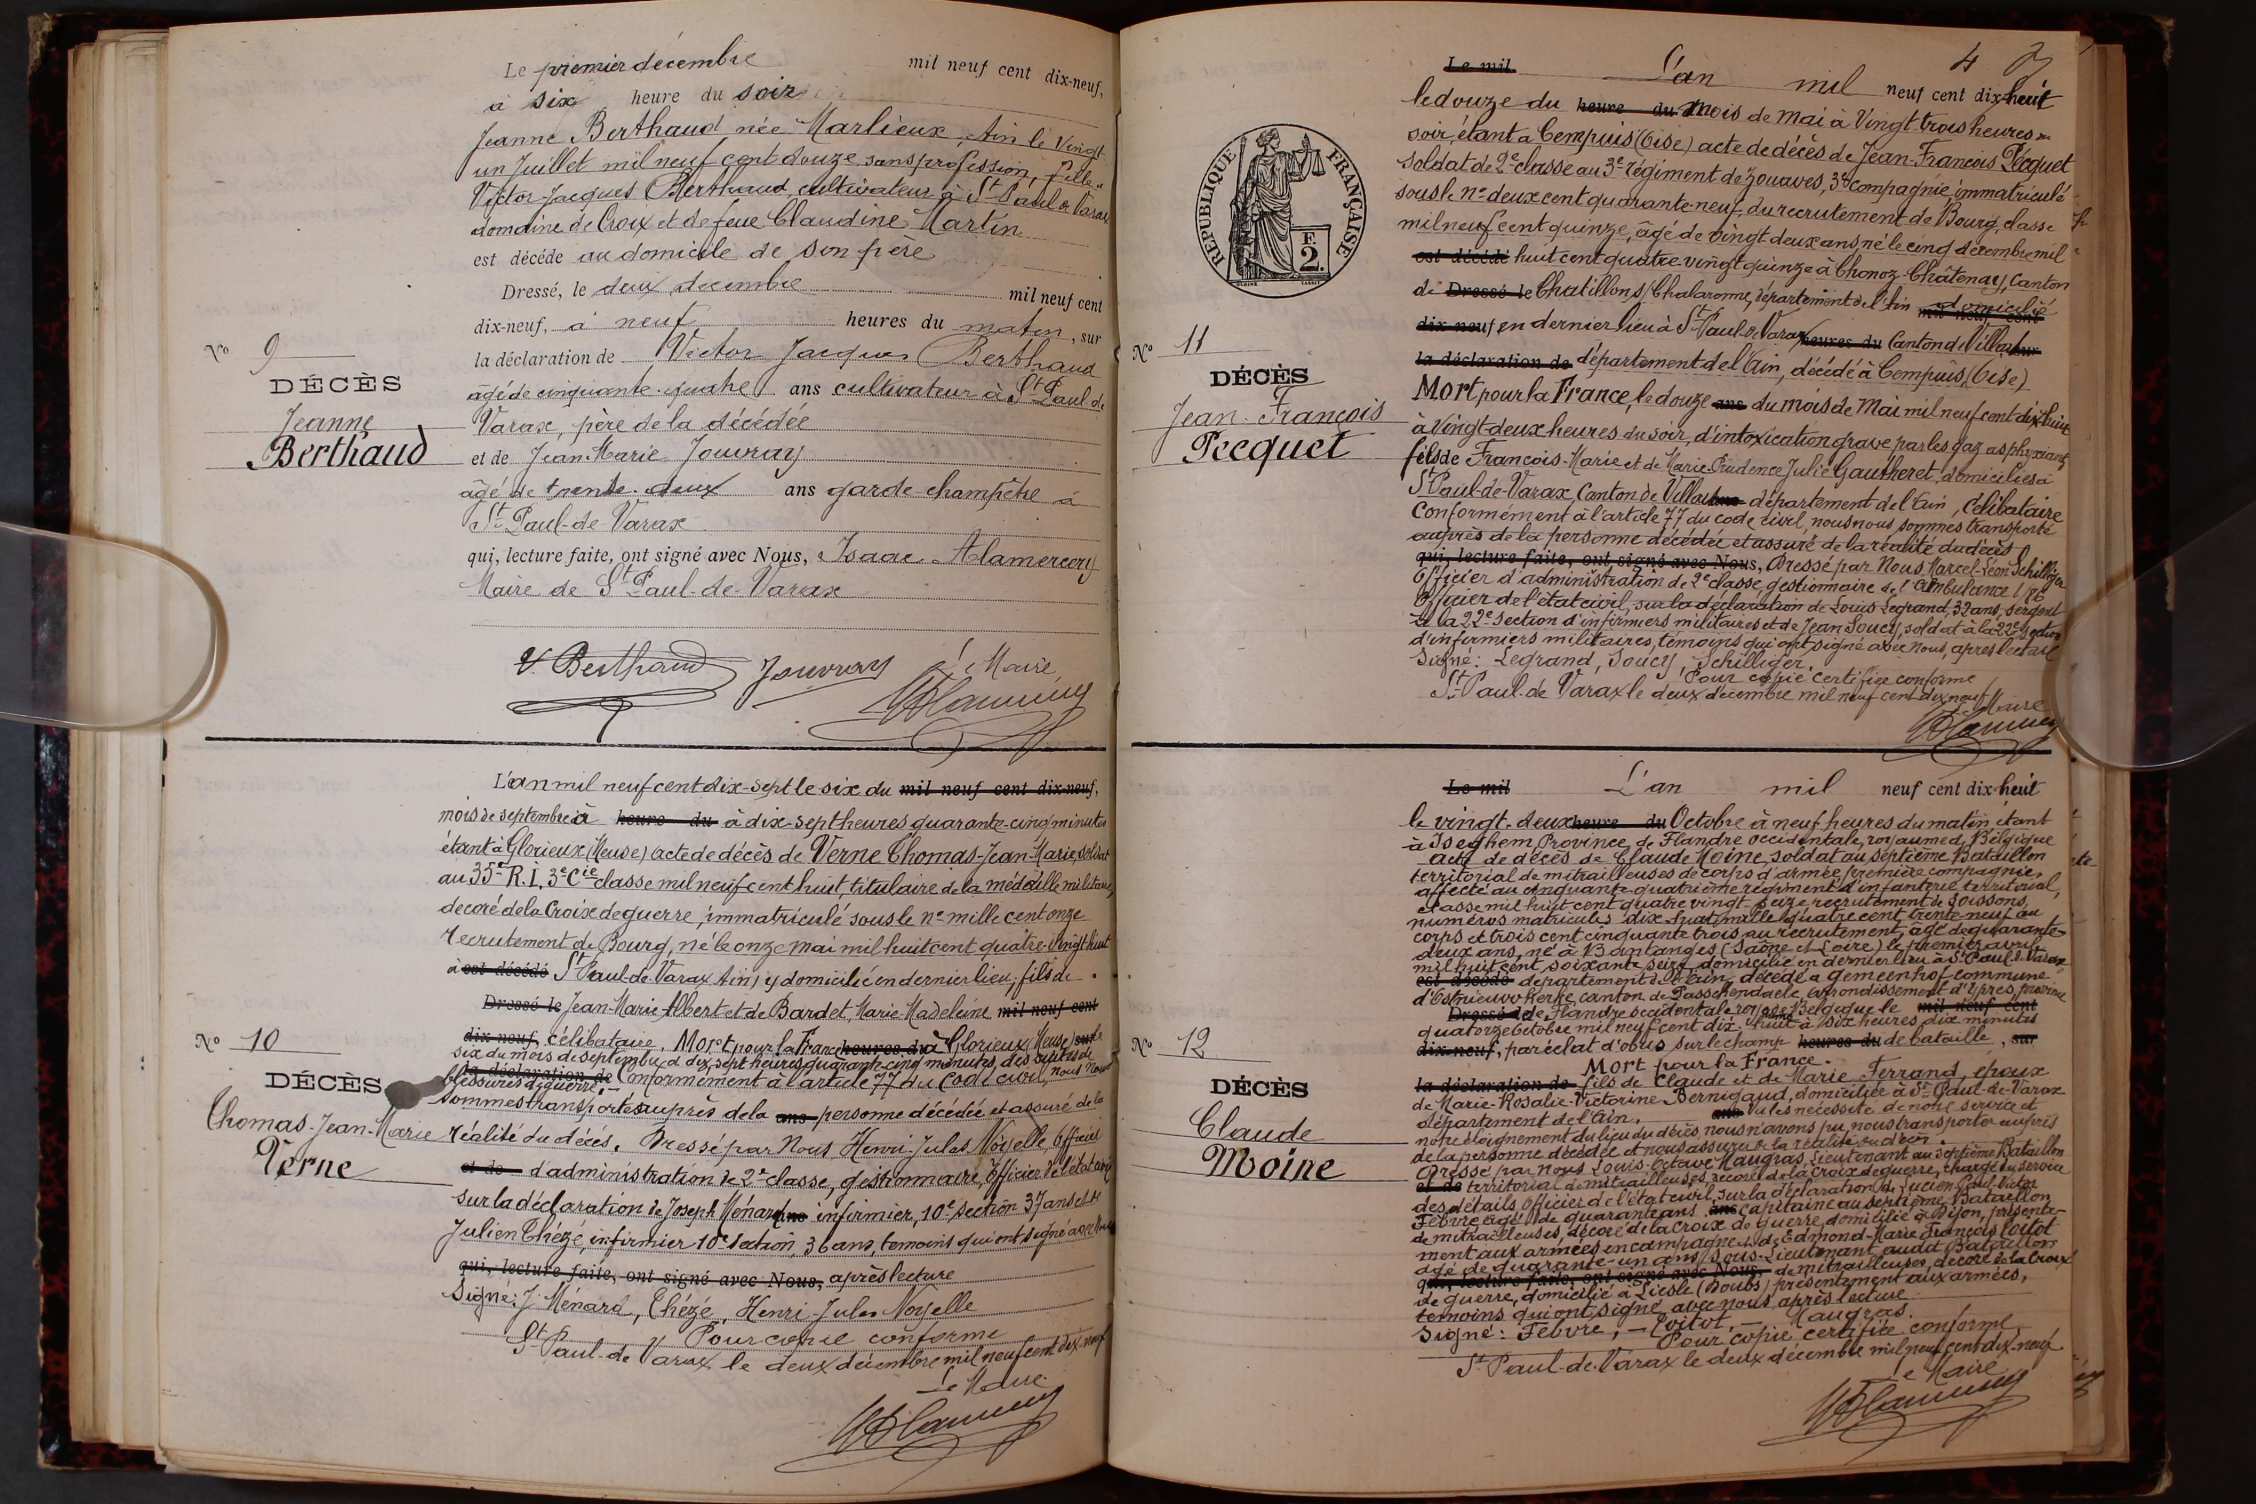 Le premier décembre mil neuf cent dix-neuf,
à six heure du soir
Jeanne Berthaud née à Marlieux, Ain le Vingt
un Juillet mil neuf cent douze sans profession, fille de
Victor Jacques Berthaud, cultivateur à St Paul de Varax
domaine de Croix et de feue Claudine Martin
est décédé au domicile de son père
Dressé, le deux decembre mil neuf cent
dix-neuf, à neuf heures du matin, sur
la déclaration de Victor Jacques Berthaud
âgé de cinquante-quatre ans cultivateur à St Paul de
Varax, père de la décédée
et de Jean Marie Jouvray
âgé de trente-deux ans garde-champêtre à
St Paul-de-Varax
qui, lecture faite, ont signé avec Nous, Isaac Alamercery
Maire de St Paul-de-Varax
V. Berthaud Jouvray Le Maire
No 9
DÉCÈS
Jeanne
Berthaud
L'an mil neuf cent dix-sept le six du mil neuf cent dix-neuf,
mois de septembre à heure du à dix-sept heures quarante-cinq minutes
étant à Glorieux (Meuse) acte de décès de Verne Thomas-Jean-Marie, soldat
au 35e R.I. 3e Cie classe mil neuf cent huit, titulaire de la médaille militaire,
decoré de la Croix de guerre, immatriculé sous le no mille cent onze
recrutement de Bourg, né le onze mai mil huit cent quatre-vingt huit
à est décédé St Paul-de-Varax Ain, y domicilié en dernier lieu, fils de
Dressé le Jean-Marie Albert et de Bardet, Marie-Madeleine mil neuf cent
dix-neuf, célibataire. Mort pour la France heures du à Glorieux (Meuse) sur le
six du mois de septembre à dix sept heures quarante cinq minutes, des suites de
la déclaration de
blessures de guerre. Conformément à l'article 77 du Code civil, nous nous
sommes transportés auprès de la ans personne décédée et assuré de la
réalité du décés. Dressé par Nous Henri-Jules Noyelle, Officier
et de d'administration de 2e classe, gestionnaire, Officier de l'état civil
sur la déclaration de Joseph Ménard ans infirmier, 10e section 37 ans et de
Julien Thézé, infirmier 10e section, 36 ans, temoins qui ont signé avec Nous
qui, lecture faite, ont signé avec Nous, après lecture
Signé: J. Ménard, Thézé, Henri-Jules Noyelle
Pour copie conforme
St Paul-de Varax le deux décembre mil neuf cent dix-neuf
Le Maire
No 10
DÉCÈS
Thomas-Jean-Marie
Verne
4
Le mil L'an mil neuf cent dix-huit
le douze du heure du mois de mai à Vingt-trois heures du
soir, étant à Cempuis (Oise) acte de décès de Jean-François Pecquet
soldat de 2e classe au 3e régiment de zouaves, 38 compagnie, immatriculé
sous le no deux cent quarante-neuf, du recrutement de Bourg, classe
mil neuf cent quinze, âgé de vingt-deux ans, né le cinq décembre mil
est décédé huit cent quatre vingt quinze à Chonoz-Châtenay, Canton
de Dressé le Chatillon s/ Chalaronne, département de l'Ain domicilié
mil neuf cent
dix neuf en dernier lieu à St Paul de Varax heures du Canton de Villars sur
la déclaration de département de l'Ain, décédé à Cempuis, (Oise)
Mort pour la France, le douze ans du mois de Mai mil neuf cent dix-huit
à vingt-deux heures du soir, d'intoxication grave par les gaz asphyxiants
fils de François-Marie et de Marie-Prudence Julie Gautheret, domiciliés à
St Paul-de-Varax, Canton de Villars département de l'Ain, Célibataire
Conformément à l'article 77 du code civil, nous nous sommes transporté
auprès de la personne décédée et assuré de la réalité du décès
qui, lecture faite, ont signé avec Nous, Dressé par Nous Marcel-Léon Schilliger
Officier d'administration de 2e classe, gestionnaire de l'Ambulance 1/76
Officier de l'état civil, sur la déclaration de Louis Legrand, 32 ans, sergent
à la 22e Section d'infirmiers militaires et de Jean Soucy, soldat à la 22e Section
d'infirmiers militaires, témoins qui ont signé avec nous, après lecture
Signé: Legrand, Soucy, Schilliger.
Pour copie certifiée conforme
St Paul-de Varax le deux décembre mil neuf cent dix neuf
Le Maire
RÉPUBLIQUE FRANÇAISE
F.
2.
No 11
DÉCÈS
Jean-François
Pecquet
Le mil L'an mil neuf cent dix-huit
le vingt-deux heure du Octobre à neuf heures du matin étant
à Iseghem Province de Flandre Occidentale, royaume de Belgique
acte de décès de Claude Moine, soldat au septième Bataillon
territorial de mitrailleuses de corps d'armée première compagnie,
affecté au cinquante-quatrième régiment d'infanterie territorial,
classe mil huit cent quatre vingt seize, recrutement de Soissons,
numéros matricules dix-huit mille quatre cent trente-neuf au
corps et trois cent cinquante trois au recrutement, âgé de quarante-
deux ans, né à Bantanges (Saône et Loire) le premier avril
mil huit cent soixante seize, domicilié en dernier lieu à St Paul de Varax
est décédé département de l'Ain, décédé à Gemeenhof commune
d'Ostnieuwkerke, canton de Passchendaele, arrondissement d'Ypres, province
Dressé le de Flandre occidentale royaume Belgique le mil neuf cent
quatorze octobre mil neuf cent dix-huit à six heures dix minutes
dix-neuf, par éclat d'obus sur le champ heures du de bataille, sur
Mort pour la France.
la déclaration de fils de Claude et de Marie Ferrand, époux
de Marie-Rosalie-Victorine Bernigaud, domiciliée à St Paul-de-Varax
département de l'Ain. ans Vu les nécessité de notre service et
notre éloignement du lieu du décès nous n'avons pu nous transporter auprès
de la personne décédée et nous assurer de la réalité du décès.
Dressé par Nous Louis-Octave Maugras, Lieutenant au septième Bataillon
et de territorial de mitrailleuses, décoré de la croix de guerre, chargé du service
des détails Officier de l'état civil, sur la déclaration de Lucien Paul Victor
Febvre âgé de quarante ans ans capitaine au septième Bataillon
de mitrailleuses, décoré de la croix de guerre, domicilié à Dijon, présente-
ment aux armées en campagne et de Edmond-Marie François Coitot
âgé de quarante-un ans, sous-Lieutenant audit Bataillon
qui, lecture faite, ont signé avec Nous, de mitrailleuses, décoré de la Croix
de guerre, domicilié à Liesle (Doubs) présentement aux armées,
temoins qui ont signé avec nous après lecture
Signé: Febvre, — Coitot, — Maugras.
Pour copie certifiée conforme
St Paul-de-Varax le deux décembre mil neuf cent dix-neuf
Le Maire
No 12
DÉCÈS
Claude
Moine